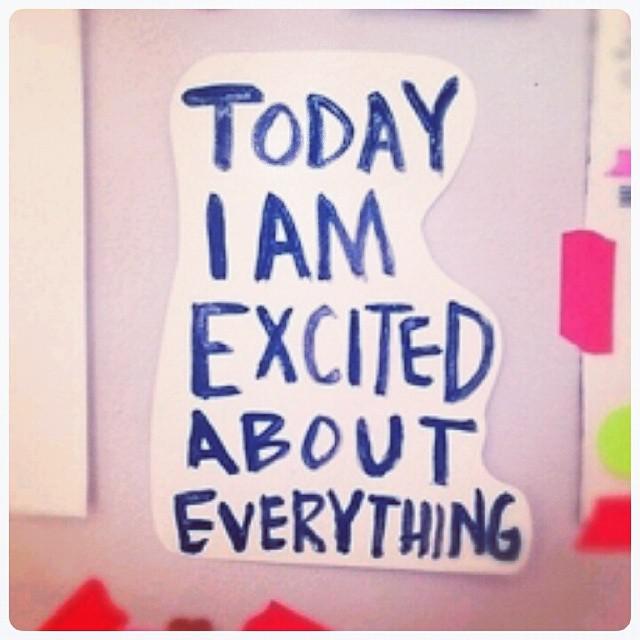 TODAY
I AM
EXCITED
ABOUT
EVERYTHING